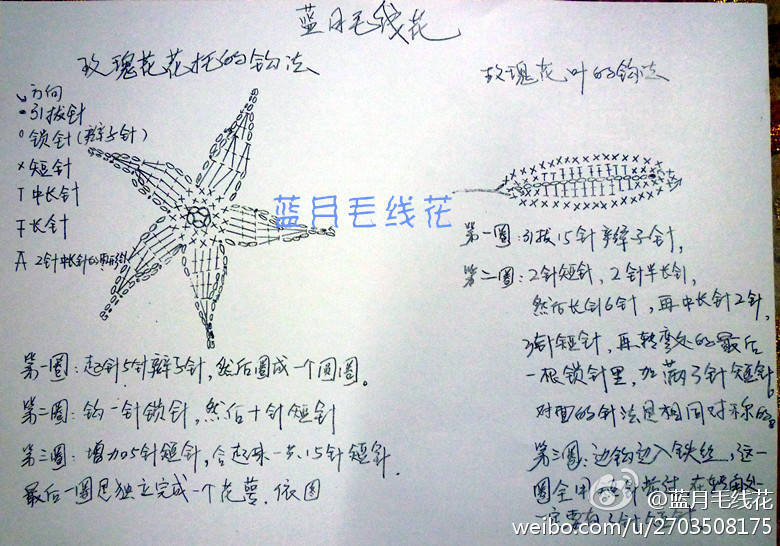 蓝月毛线花
玫瑰花花托的钩法
方向
引拔针
锁针(辫子针)
短针
中长针
长针
2针中长针的
蓝月毛线花
第一圈:起针5针辫子针,然后圈成一个圆圈。
第二圈:钩一针锁针,然后十针短针
第三圈:增加5针短针,合起来一共15针短针.
最后一圈是独立完成一个花萼.依图
玫瑰花叶的钩法
第一圈:引拔15针辫子针,
第二圈:2针短针,2针半长针,
然后长针6针,再中长针2针,
3针短针,再转弯处的最后
一根锁针里,加满3针短针
对面的针法是相同对称的
第三圈:边钩边入铁丝,这一
圈全用
一定要
@蓝月毛线花
weibo.com/u/2703508175